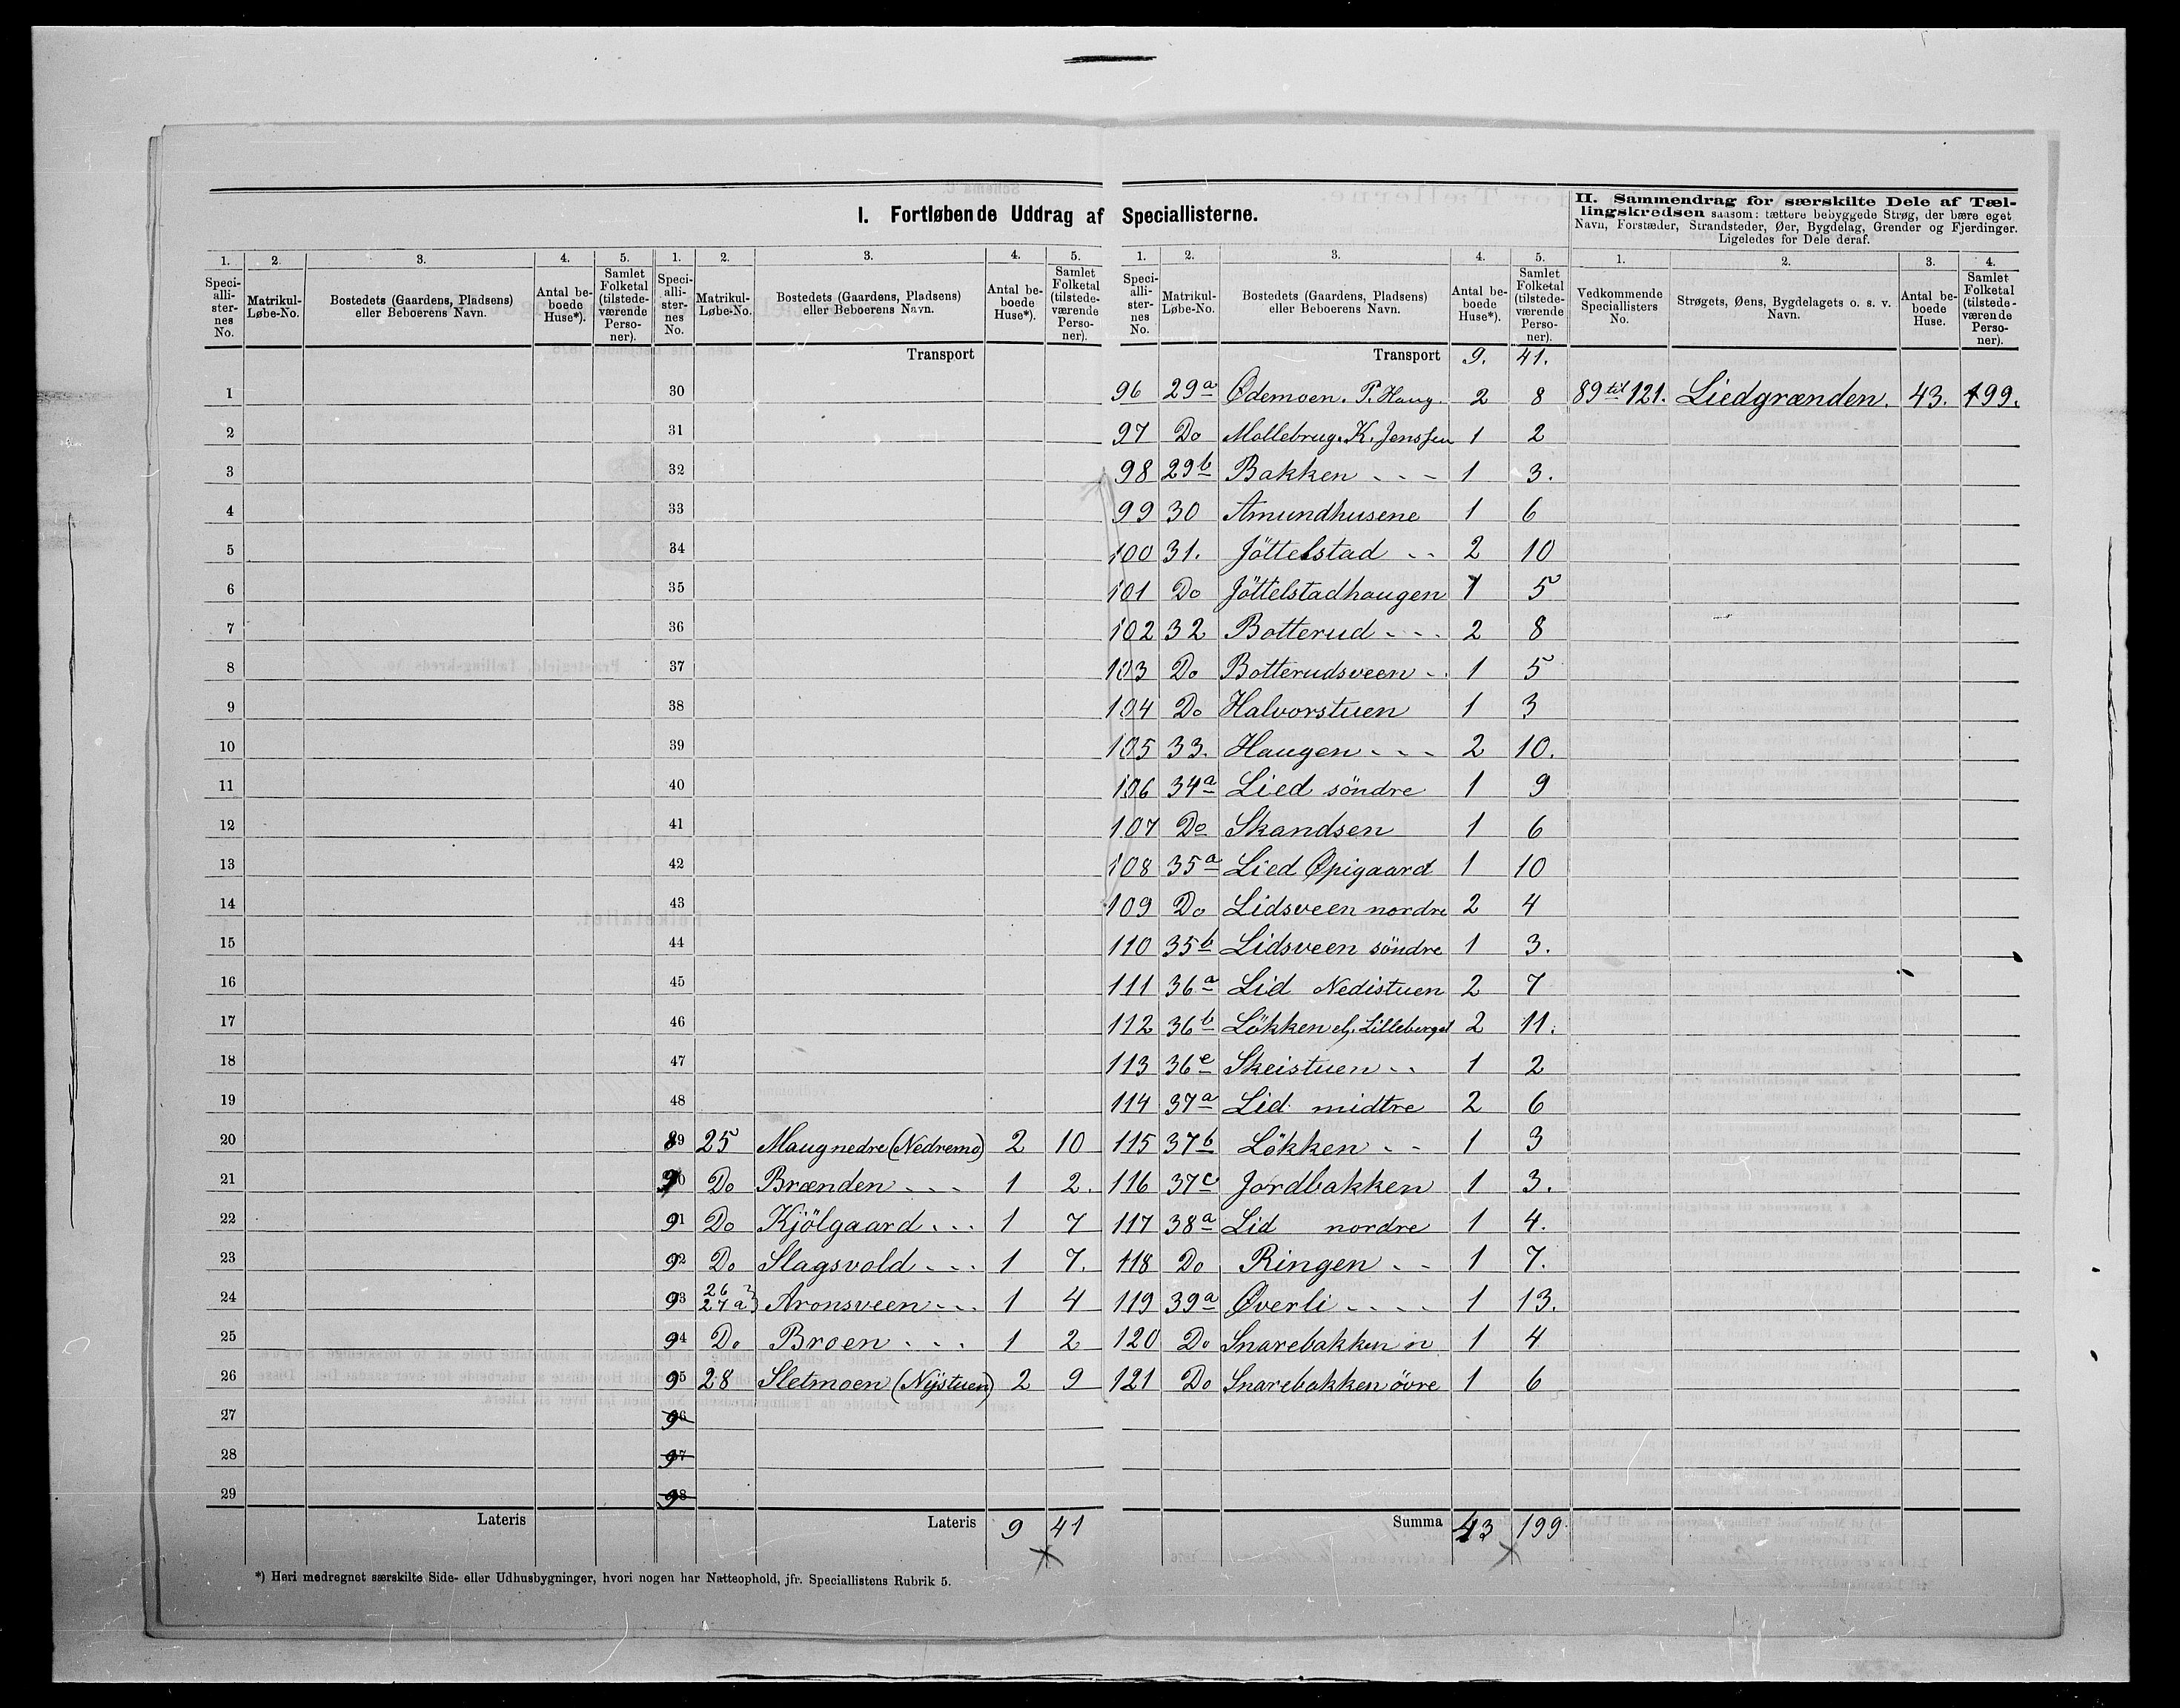 I. Fortløbende Uddrag af Speciallisterne.
II. Sammendrag for særskilte Dele af Tæl-
lingskredsen saasom: tættere bebyggede Strøg, der bære eget
Navn, Forstæder, Strandsteder, Øer, Bygdelag, Grender og Fjerdinger.
Ligeledes for Dele deraf.
1. 2. 3. 4. 5. 1. 2. 3. 4. 5.
Speci-alli-ster-nes No. Matrikul-Løbe-No. Bostedets (Gaardens, Pladsens) eller Beboerens Navn. Antal be-boede Huse*). Samlet Folketal (tilstede-værende Perso-ner).
Speci-alli-ster-nes No. Matrikul-Løbe-No. Bostedets (Gaardens, Pladsens) eller Beboerens Navn. Antal be-boede Huse*). Samlet Folketal (tilstede-værende Perso-ner).
Transport
1 30
2 31
3 32
4 33
5 34
6 35
7 36
8 37
9 38
10 39
11 40
12 41
13 42
14 43
15 44
16 45
17 46
18 47
19 48
20 89 25 Maug nedre (Nedremo) 2 10
21 90 Do Brænden 1 2.
22 91 Do Kjölgaard 1 7
23 92 Do Slagsvold 1 7.
24 93 26 27a} Aronsveen 1 4
25 94 Do Broen 1 2
26 95 28 Sletmoen (Nystuen) 2 9
27 96
28 97
29 98
Lateris Lateris 9 41
*) Heri medregnet særskilte Side- eller Udhusbygninger, hvori nogen har Natteophold, jfr. Speciallistens Rubrik 5.
1. 2. 3. 4. 5. 1. 2. 3. 4.
Speci-alli-ster-nes No. Matrikul-Løbe-No. Bostedets (Gaardens, Pladsens) eller Beboerens Navn. Antal be-boede Huse*). Samlet Folketal (tilstede-værende Perso-ner).
Vedkommende Speciallisters No. Strøgets, Øens, Bygdelagets o. s. v. Navn. Antal be-boede Huse. Samlet Folketal (tilstede-værende Perso-ner).
Transport 9. 41.
96 29a Ødemoen. P. Haug. 2 8 89 til 121. Liedgrænden. 43. 199.
97 Do Mollebrug. K. Jenssen 1 2
98 29b Bakken 1 3.
99 30 Amundhusene 1 6
100 31. Jöttelstad 2 10
101 Do Jöttelstadhaugen 1 5
102 32 Botterud 2 8
103 Do Botterudsveen 1 5
104 Do Halvorstuen 1 3
105 33. Haugen 2 10.
106 34a Lied söndre 1 9
107 Do Skandsen 1 6
108 35a Lied Øpigaard 1 10
109 Do Lidsveen nordre 2 4
110 35b Lidsveen söndre 1 3.
111 36a Lid Nedistuen 2 7
112 36b Lökken el. Lilleberget 2 11.
113 36e Skeistuen 1 2
114 37a Lid midtre 2 6
115 37b Lökken 1 3
116 37c Jordbakken 1 3.
117 38a Lid nordre 1 4.
118 Do Ringen 1 7.
119 39a Øverli 1 13.
120 Do Snarebakken n 1 4
121 Do Snarebakken övre 1 6
Summa 43 199